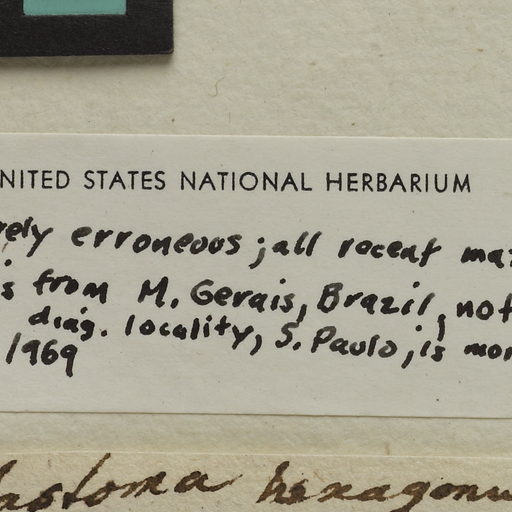 NITED STATES NATIONAL HERBARIUM
rely erroneous; all recent mat
is from M. Gerais, Brazil, not
diag. locality, S. Paulo, is mor
1969
lastoma hexagonu